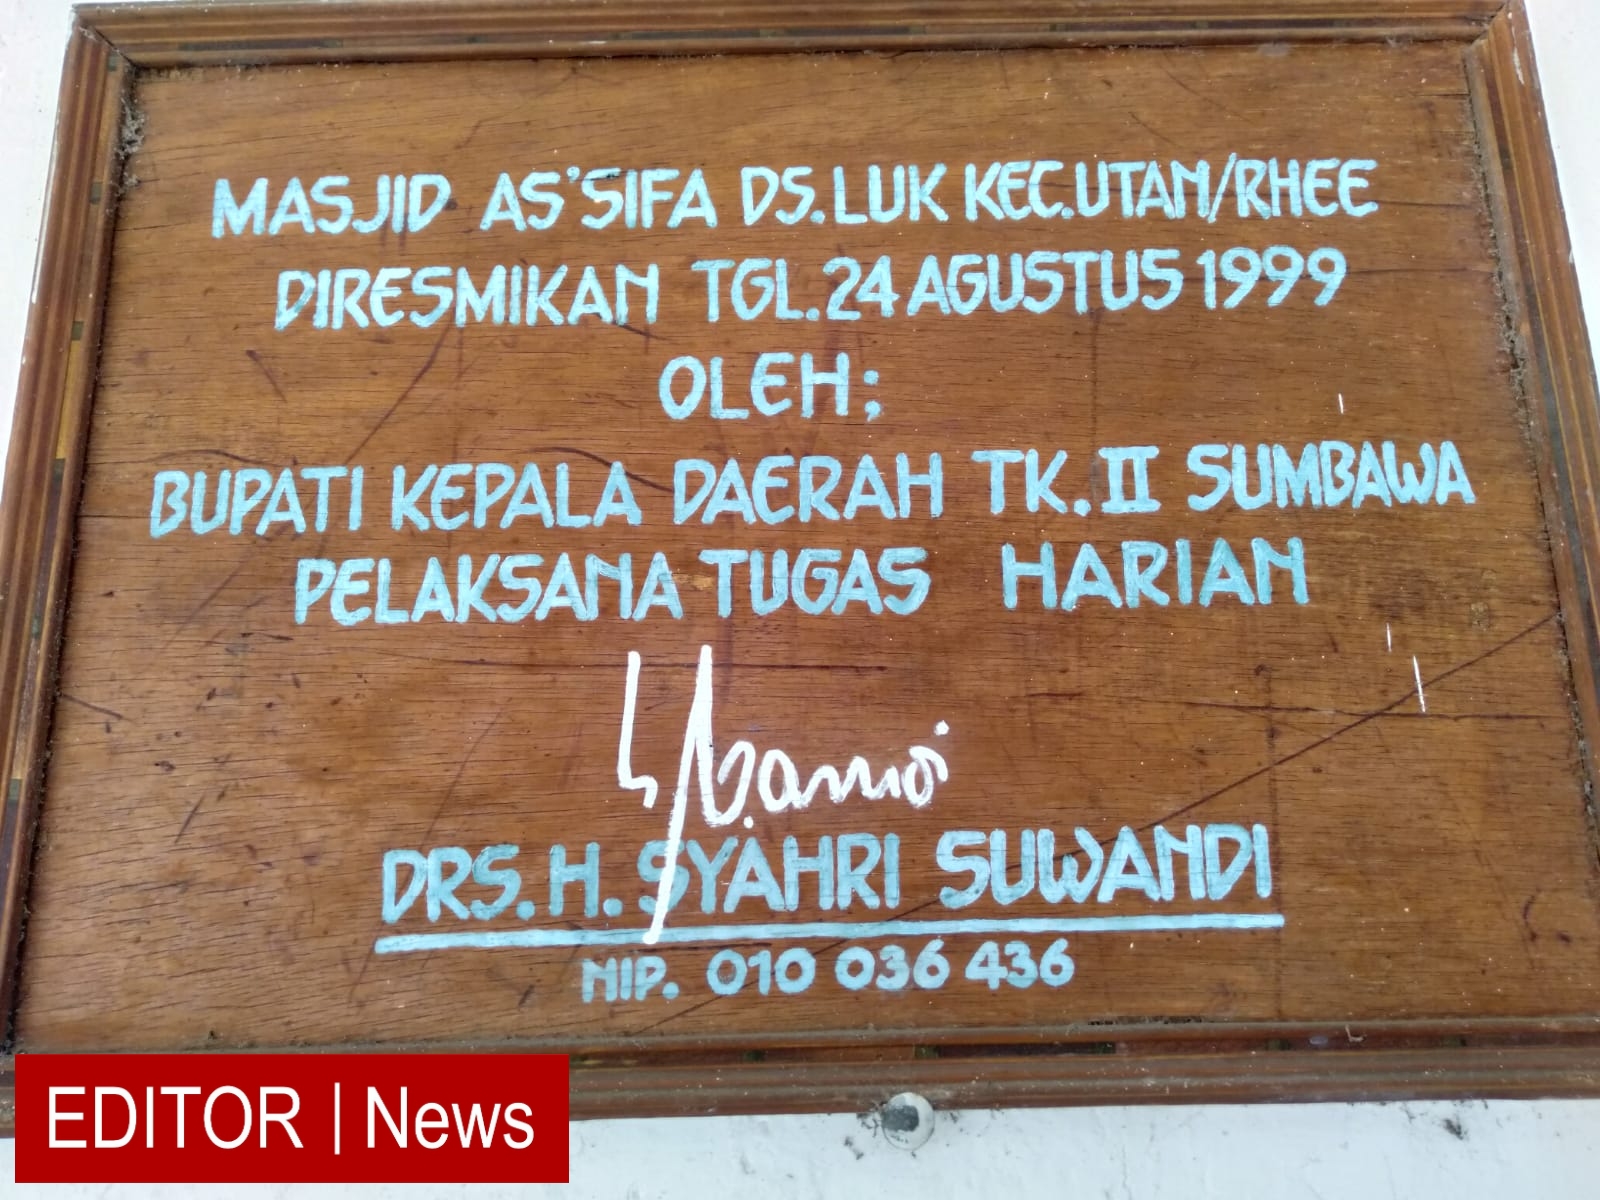 MASJID AS'SIFA DS.LUK KEC.UTAN/RHEE
DIRESMIKAN TGL.24 AGUSTUS 1999
OLEH;
BUPATI KEPALA DAERAH TK.II SUMBAWA
PELAKSANA TUGAS HARIAN
DRS. H. SYAHRI SUWANDI
NIP. 010 036 436
EDITOR | News